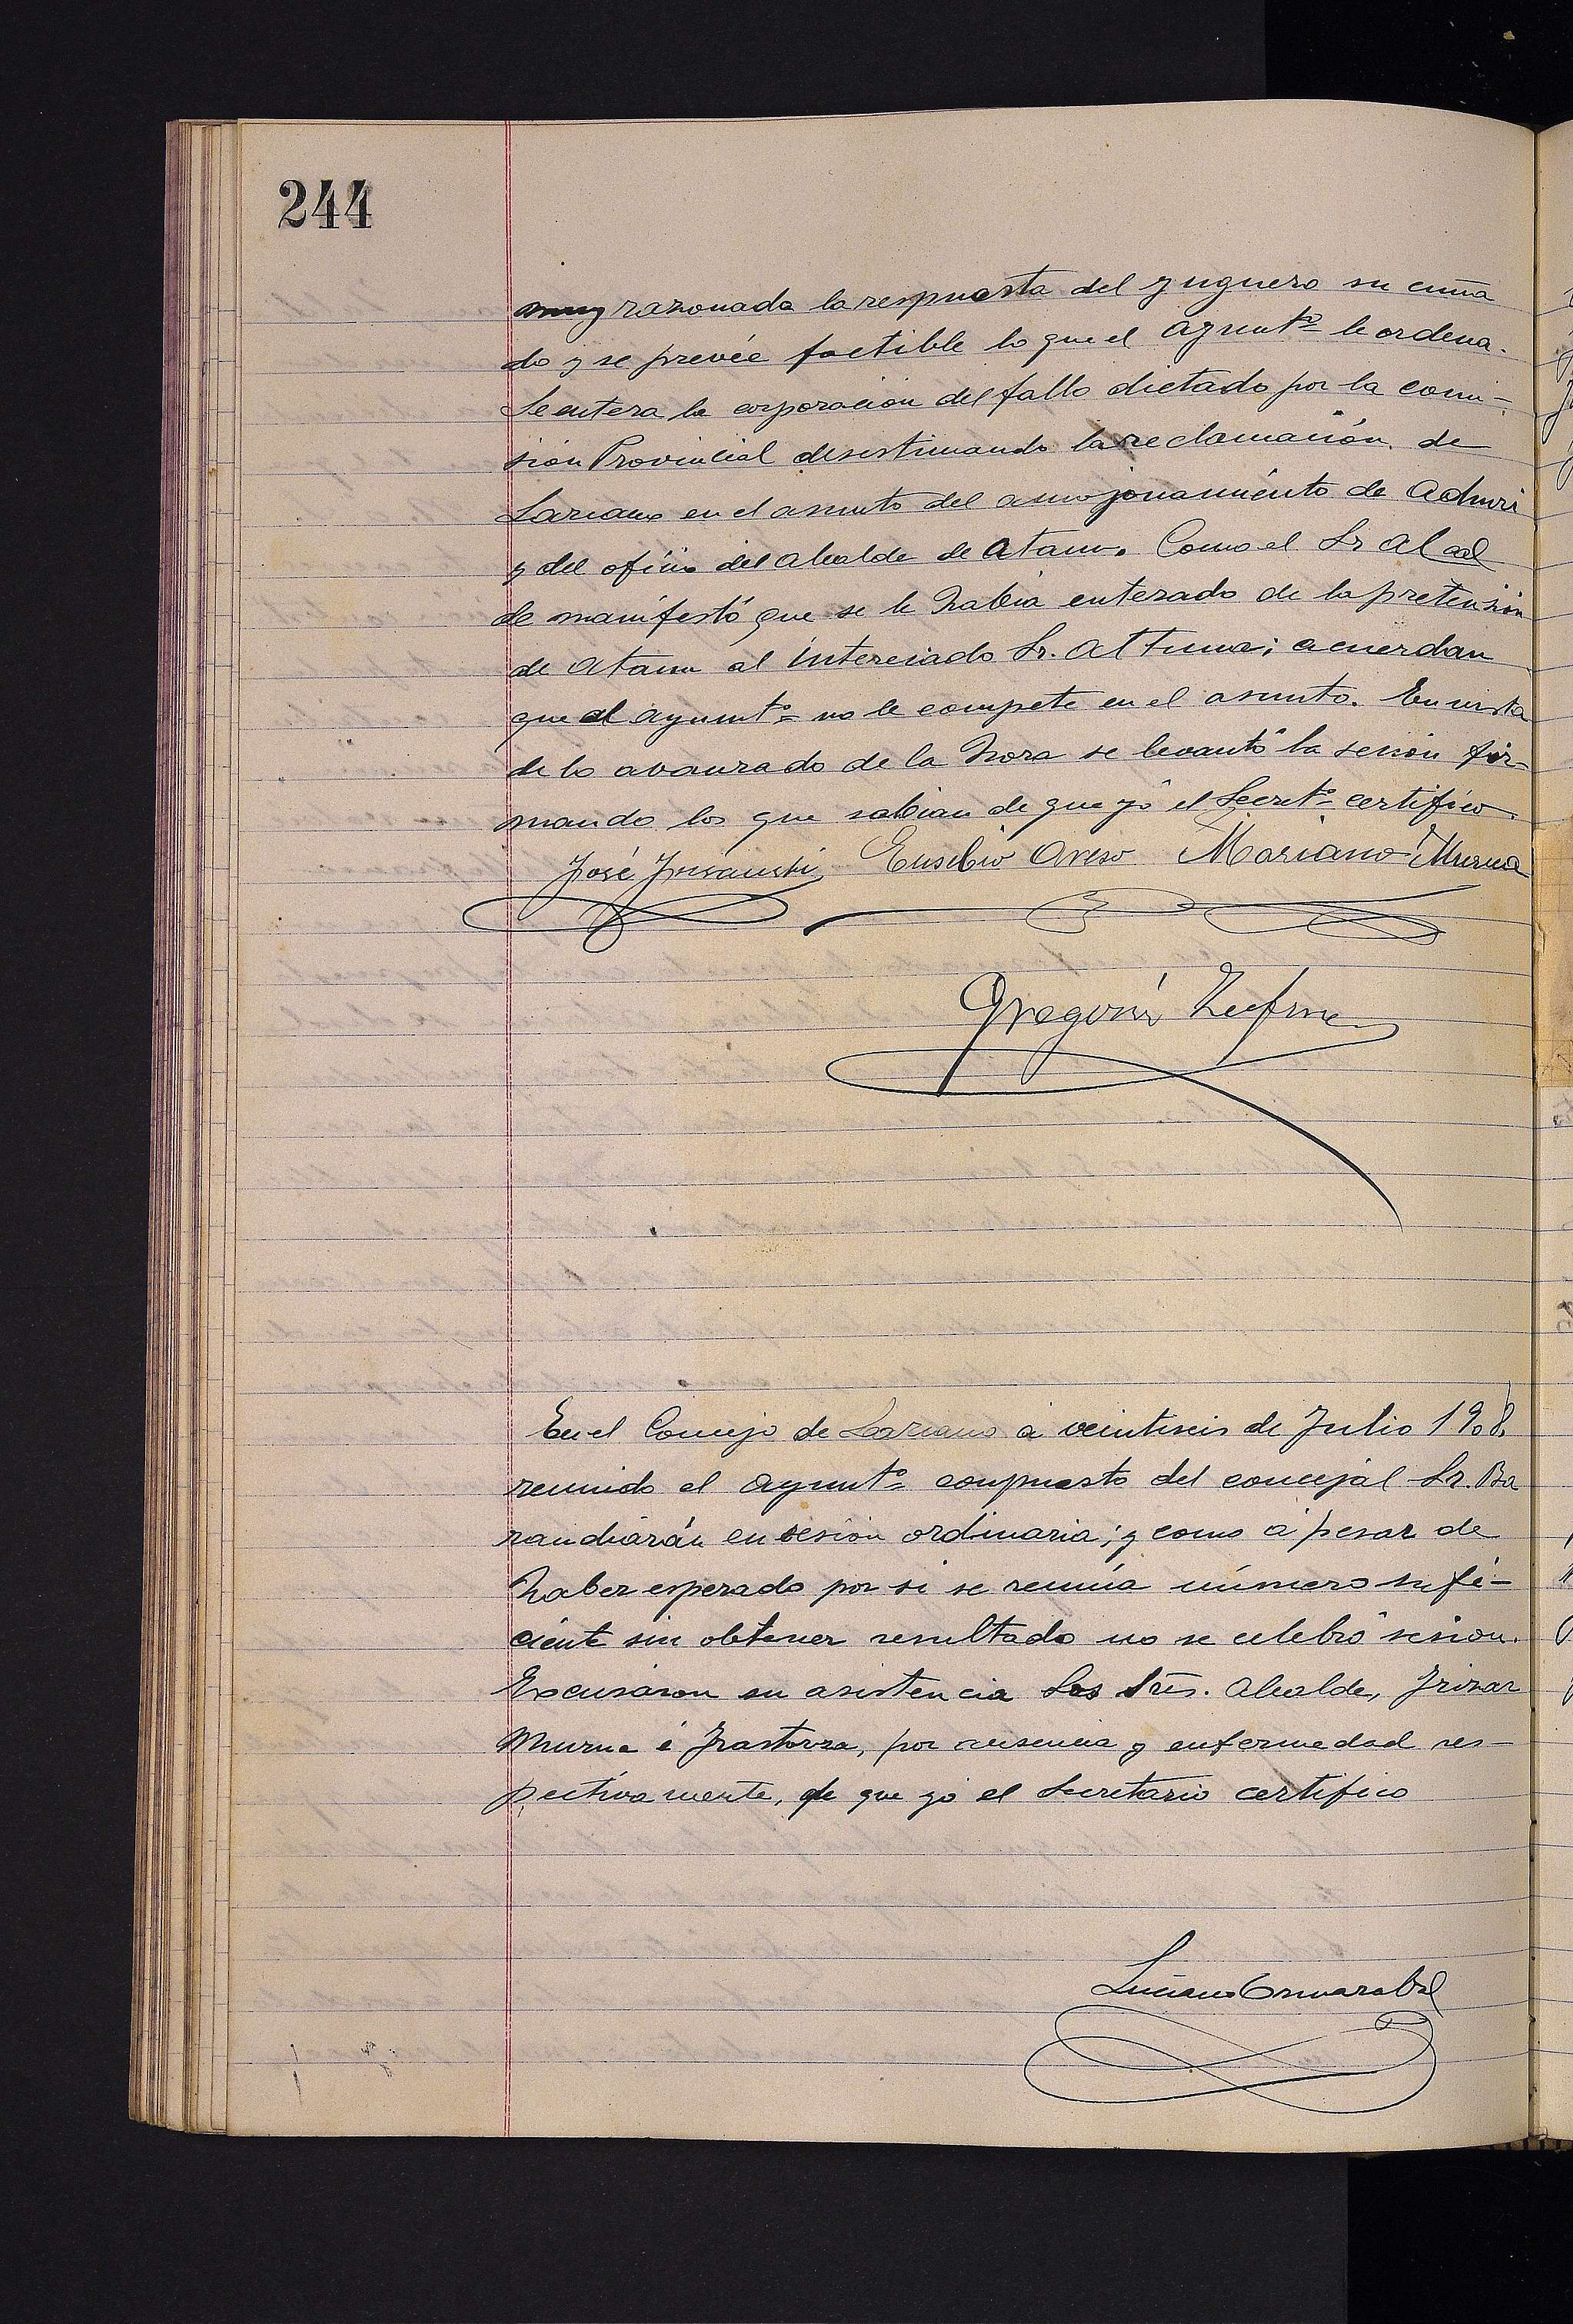 244
muy razonada la respuesta del yuguero su cuña
do y se prevée factible lo que el Ayuntº le ordena.
Se entera la corporación del fallo dictado por la comi-
sión Provincial desestimando la reclamación de
Lazcano en el asunto del amojonamiento de
y del oficio del Alcalde de Ataun. Como el Sr Alcal
de manifestó que se le había enterado de la pretensión
de Ataun al interesado Sr. Altuna; acuerdan
que al ayuntº no le compete en el asunto. En vista
de lo avanzado de la hora se levantó la sesión fir-
mando los que sabían de que yó el Secretº certifico
José Eusebio Mariano Murua
Gregorio
En el Concejo de Lazcano á veintiseis de Julio 1908
reunido el ayuntº compuesto del concejal Sr. Ba
randiarán en sesión ordinaria; y como á pesar de
haber esperado por si se reunía número sufi-
ciente sin obtener resultado no se celebró sesión.
Excusaron su asistencia los Sres. Alcalde, Irizar
Murua é Irastorza, por ausencia y enfermedad res-
pectivamente, de que yó el Secretario certifico
Luciano